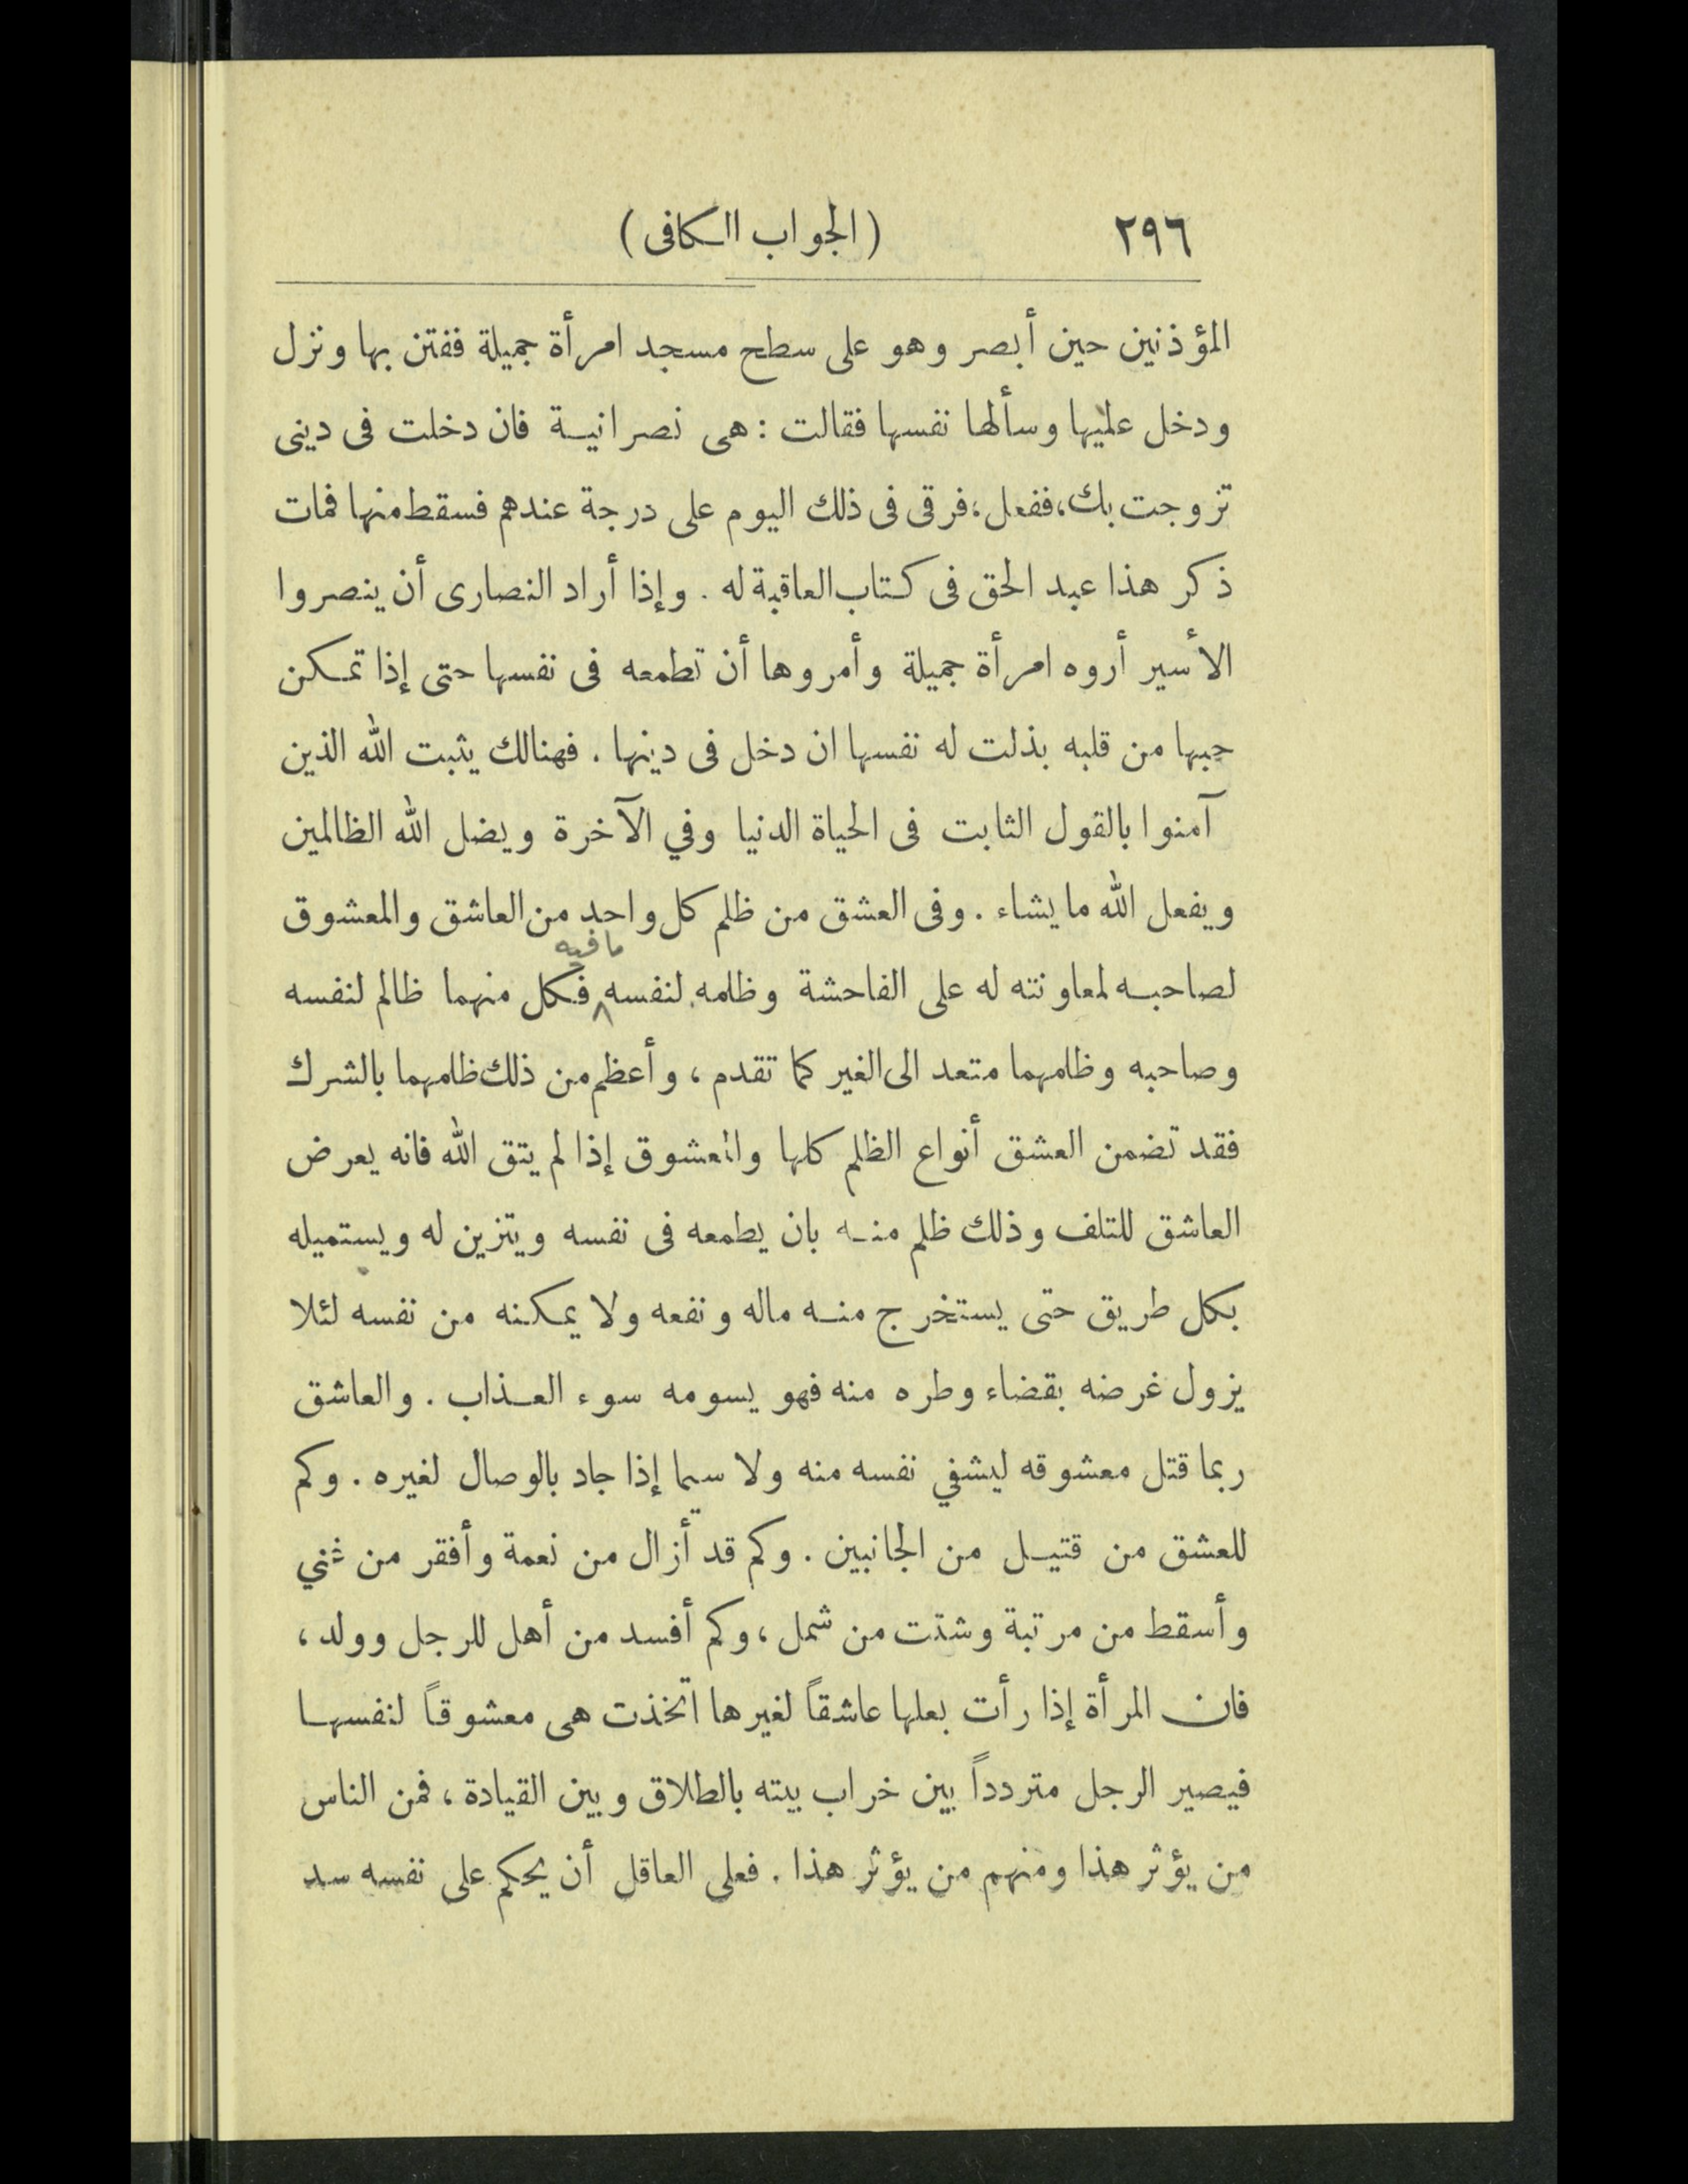 ٢٩٦ (الجواب الكافى)
المؤذنين حين أبصر وهو على سطح مسجد امرأة جميلة ففتن بها ونزل
ودخل عليها وسألها نفسها فقالت : هى نصرانية فان دخلت فى دينى
تزوجت بك، ففعل ؛ فرقى فى ذلك اليوم على درجة عندهم فسقط منها فمات
ذكر هذا عبد الحق فى كتاب العاقبة له . وإذا أراد النصارى أن ينصروا
الأسير أروه امرأة جميلة وأمروها أن تطمعه فى نفسها حتى إذا تمكن
حبها من قلبه بذلت له نفسها ان دخل فى دينها . فهنالك يثبت الله الذين
آمنوا بالقول الثابت فى الحياة الدنيا وفي الآخرة ويضل الله الظالمين
ويفعل الله ما يشاء . وفى العشق من ظلم كل واحد من العاشق والمعشوق
ما فيه
لصاحبه لمعاونته له على الفاحشة وظلمه لنفسه فكل منهما ظالم لنفسه
وصاحبه وظلمهما متعد الى الغير كما تقدم ، وأعظم من ذلك ظلمهما بالشرك
فقد تضمن العشق أنواع الظلم كلها والمعشوق إذا لم يتق الله فانه يعرض
العاشق للتلف وذلك ظلم منه بان يطمعه فى نفسه ويتزين له ويستميله
بكل طريق حتى يستخرج منه ماله ونفعه ولا يمكنه من نفسه لئلا
يزول غرضه بقضاء وطره منه فهو يسومه سوء العذاب . والعاشق
ربما قتل معشوقه ليشفي نفسه منه ولا سيما إذا جاد بالوصال لغيره . وكم
للعشق من قتيل من الجانبين . وكم قد أزال من نعمة وأفقر من غني
وأسقط من مرتبة وشتت من شمل ، وكم أفسد من أهل للرجل وولد ،
فان المرأة إذا رأت بعلها عاشقاً لغيرها اتخذت هى معشوقاً لنفسها
فيصير الرجل متردداً بين خراب بيته بالطلاق وبين القيادة ، فمن الناس
من يؤثر هذا ومنهم من يؤثر هذا . فعلى العاقل أن يحكم على نفسه سد